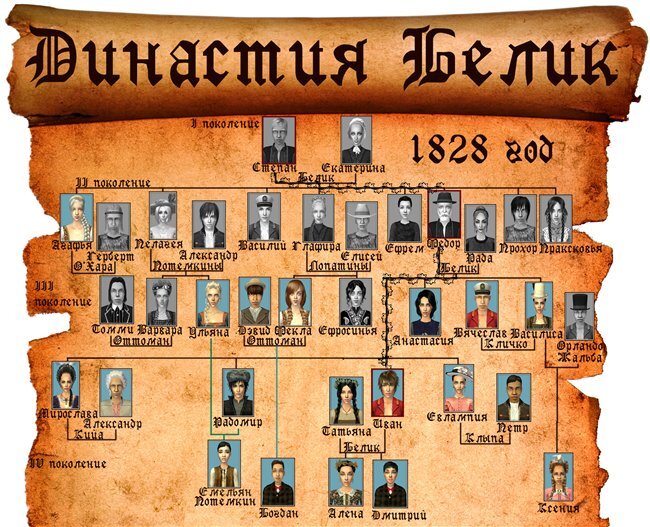 Династия Белик
I поколение
1828 год
Степан Екатерина
Белик
II поколение
Агафья Герберт Пелагея Александр Василий Глафира Елисей Ефрем Федор Рада Прохор Прасковья
О'Хара Потемкины Лопатины Белик
III поколение
Томми Варвара Ульяна Дэвид Фекла Ефросинья Анастасия Вячеслав Василиса Орландо
Оттоман Оттоман Кличко Жальба
Мирослава Александр Радомир Татьяна Иван Евлампия Петр
Кийа Белик Клыпа
IV поколение
Емельян Потемкин Богдан Алена Дмитрий Ксения